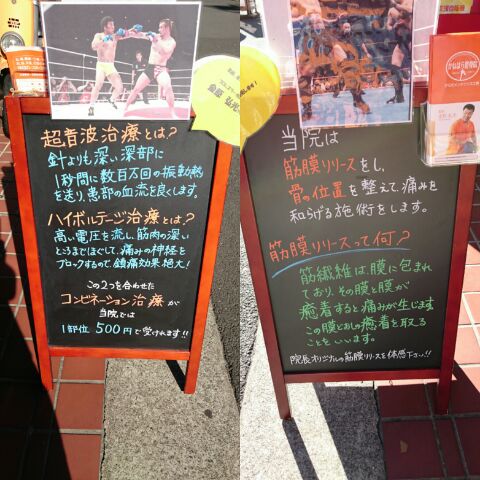 超音波治療とは?
針よりも深い深部に
1秒間に数百万回の振動熱
を送り、患部の血流を良くします。
ハイボルテージ治療とは?
高い電圧を流し、筋肉の深い
ところまでほぐして、痛みの神経を
ブロックするので、鎮痛効果、絶大!
この2つを合わせた
コンビネーション治療が
当院では
1部位 500円で受けれます!!
当院は
筋膜リリースをし、
骨の位置を整えて、痛みを
和らげる施術をします。
筋膜リリースって何?
筋繊維は、膜に包まれ
ており、その膜と膜が
癒着すると痛みが生じます
この膜どおしの癒着を取る
ことをいいます。
院長オリジナルの筋膜リリースを体感下さい!!